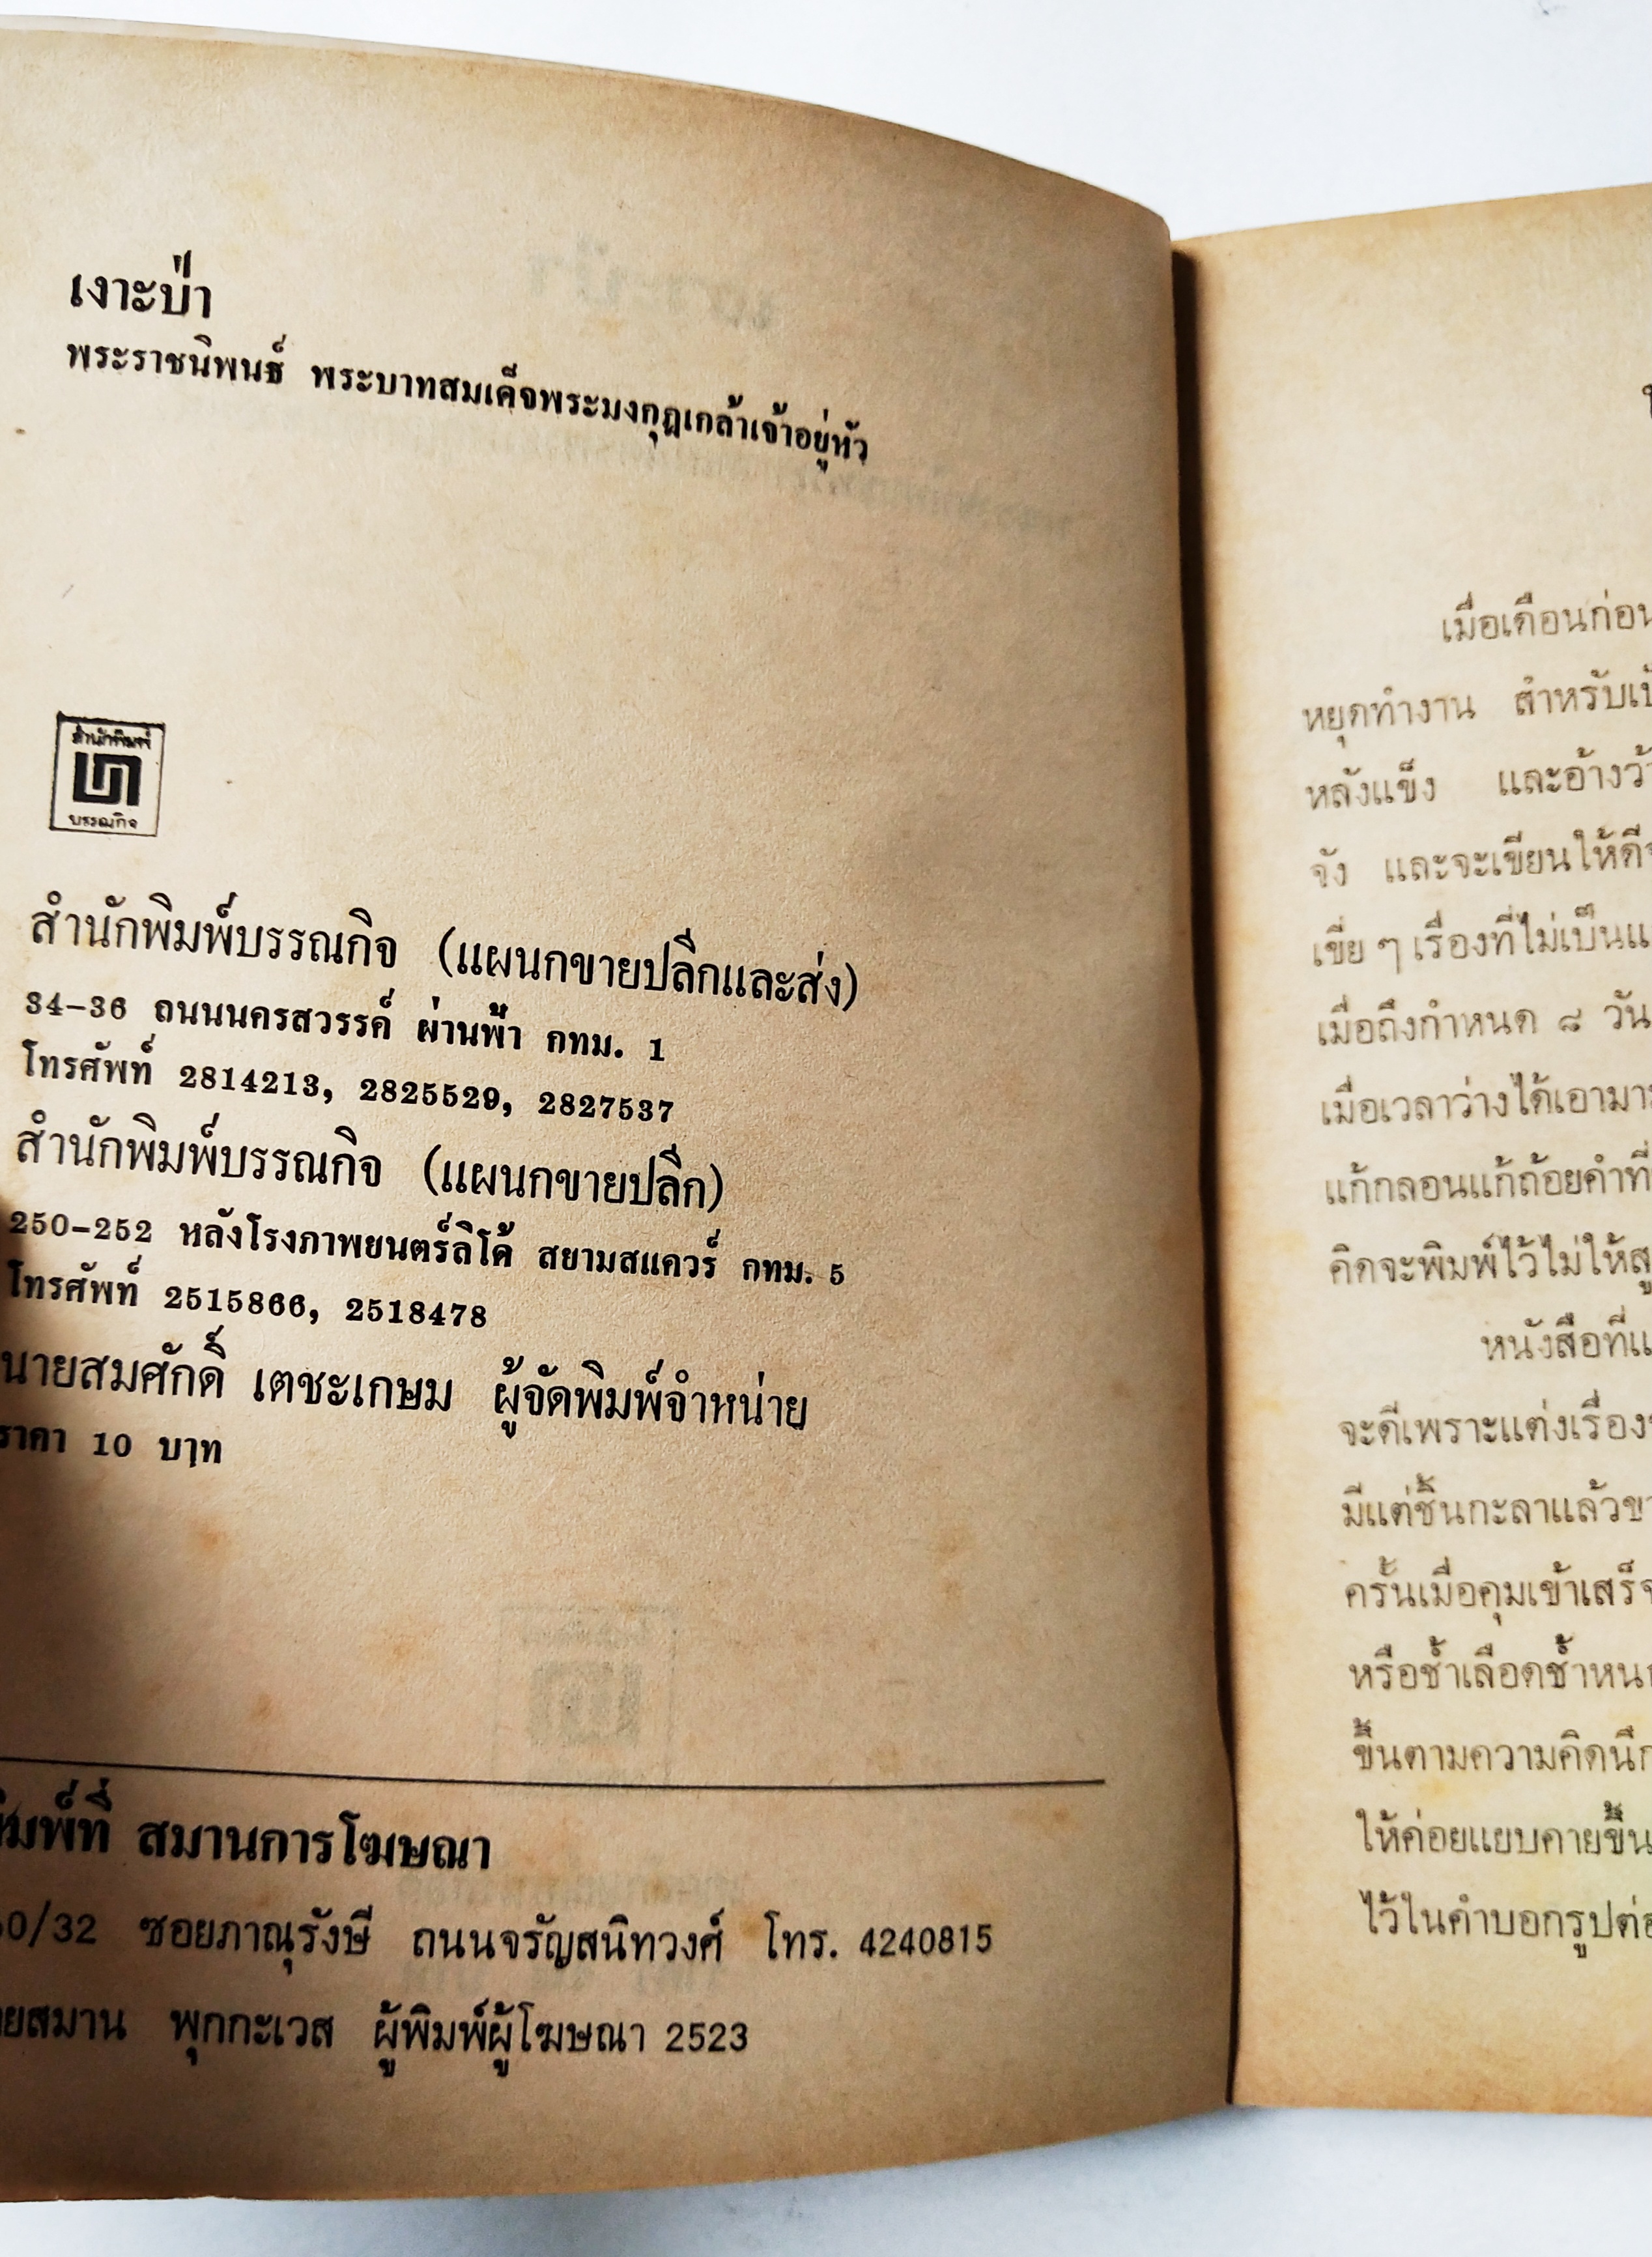 เงาะป่า
พระราชนิพนธ์ พระบาทสมเด็จพระมงกุฎเกล้าเจ้าอยู่หัว
สำนักพิมพ์
บรรณกิจ
สำนักพิมพ์บรรณกิจ (แผนกขายปลีกและส่ง)
34-36 ถนนนครสวรรค์ ผ่านฟ้า กทม. 1
โทรศัพท์ 2814213, 2825529, 2827537
สำนักพิมพ์บรรณกิจ (แผนกขายปลีก)
250-252 หลังโรงภาพยนตร์ลิโด้ สยามสแควร์ กทม. 5
โทรศัพท์ 2515866, 2518478
นายสมศักดิ์ เตชะเกษม ผู้จัดพิมพ์จำหน่าย
ราคา 10 บาท
พิมพ์ที่ สมานการโฆษณา
0/32 ซอยภาณุรังษี ถนนจรัญสนิทวงศ์ โทร. 4240815
ยสมาน พุกกะเวส ผู้พิมพ์ผู้โฆษณา 2523
เมื่อเดือนก่อน
หยุดทำงาน สำหรับ
หลังแข็ง และอ้างว้า
จัง และจะเขียนให้ดี
เขี่ย ๆ เรื่องที่ไม่เป็น
เมื่อถึงกำหนด ๘ วัน
เมื่อเวลาว่างได้เอามา
แก้กลอนแก้ถ้อยคำที่
คิดจะพิมพ์ไว้ไม่ให้
หนังสือที่
จะดีเพราะแต่งเรื่อง
มีแต่ชิ้นกะลาแล้ว
ครั้นเมื่อคุมเข้าเสร็จ
หรือช้ำเลือดช้ำหนอ
ขึ้นตามความคิดนึก
ให้ค่อยแยบคายขึ้น
ไว้ในคำบอกรูป